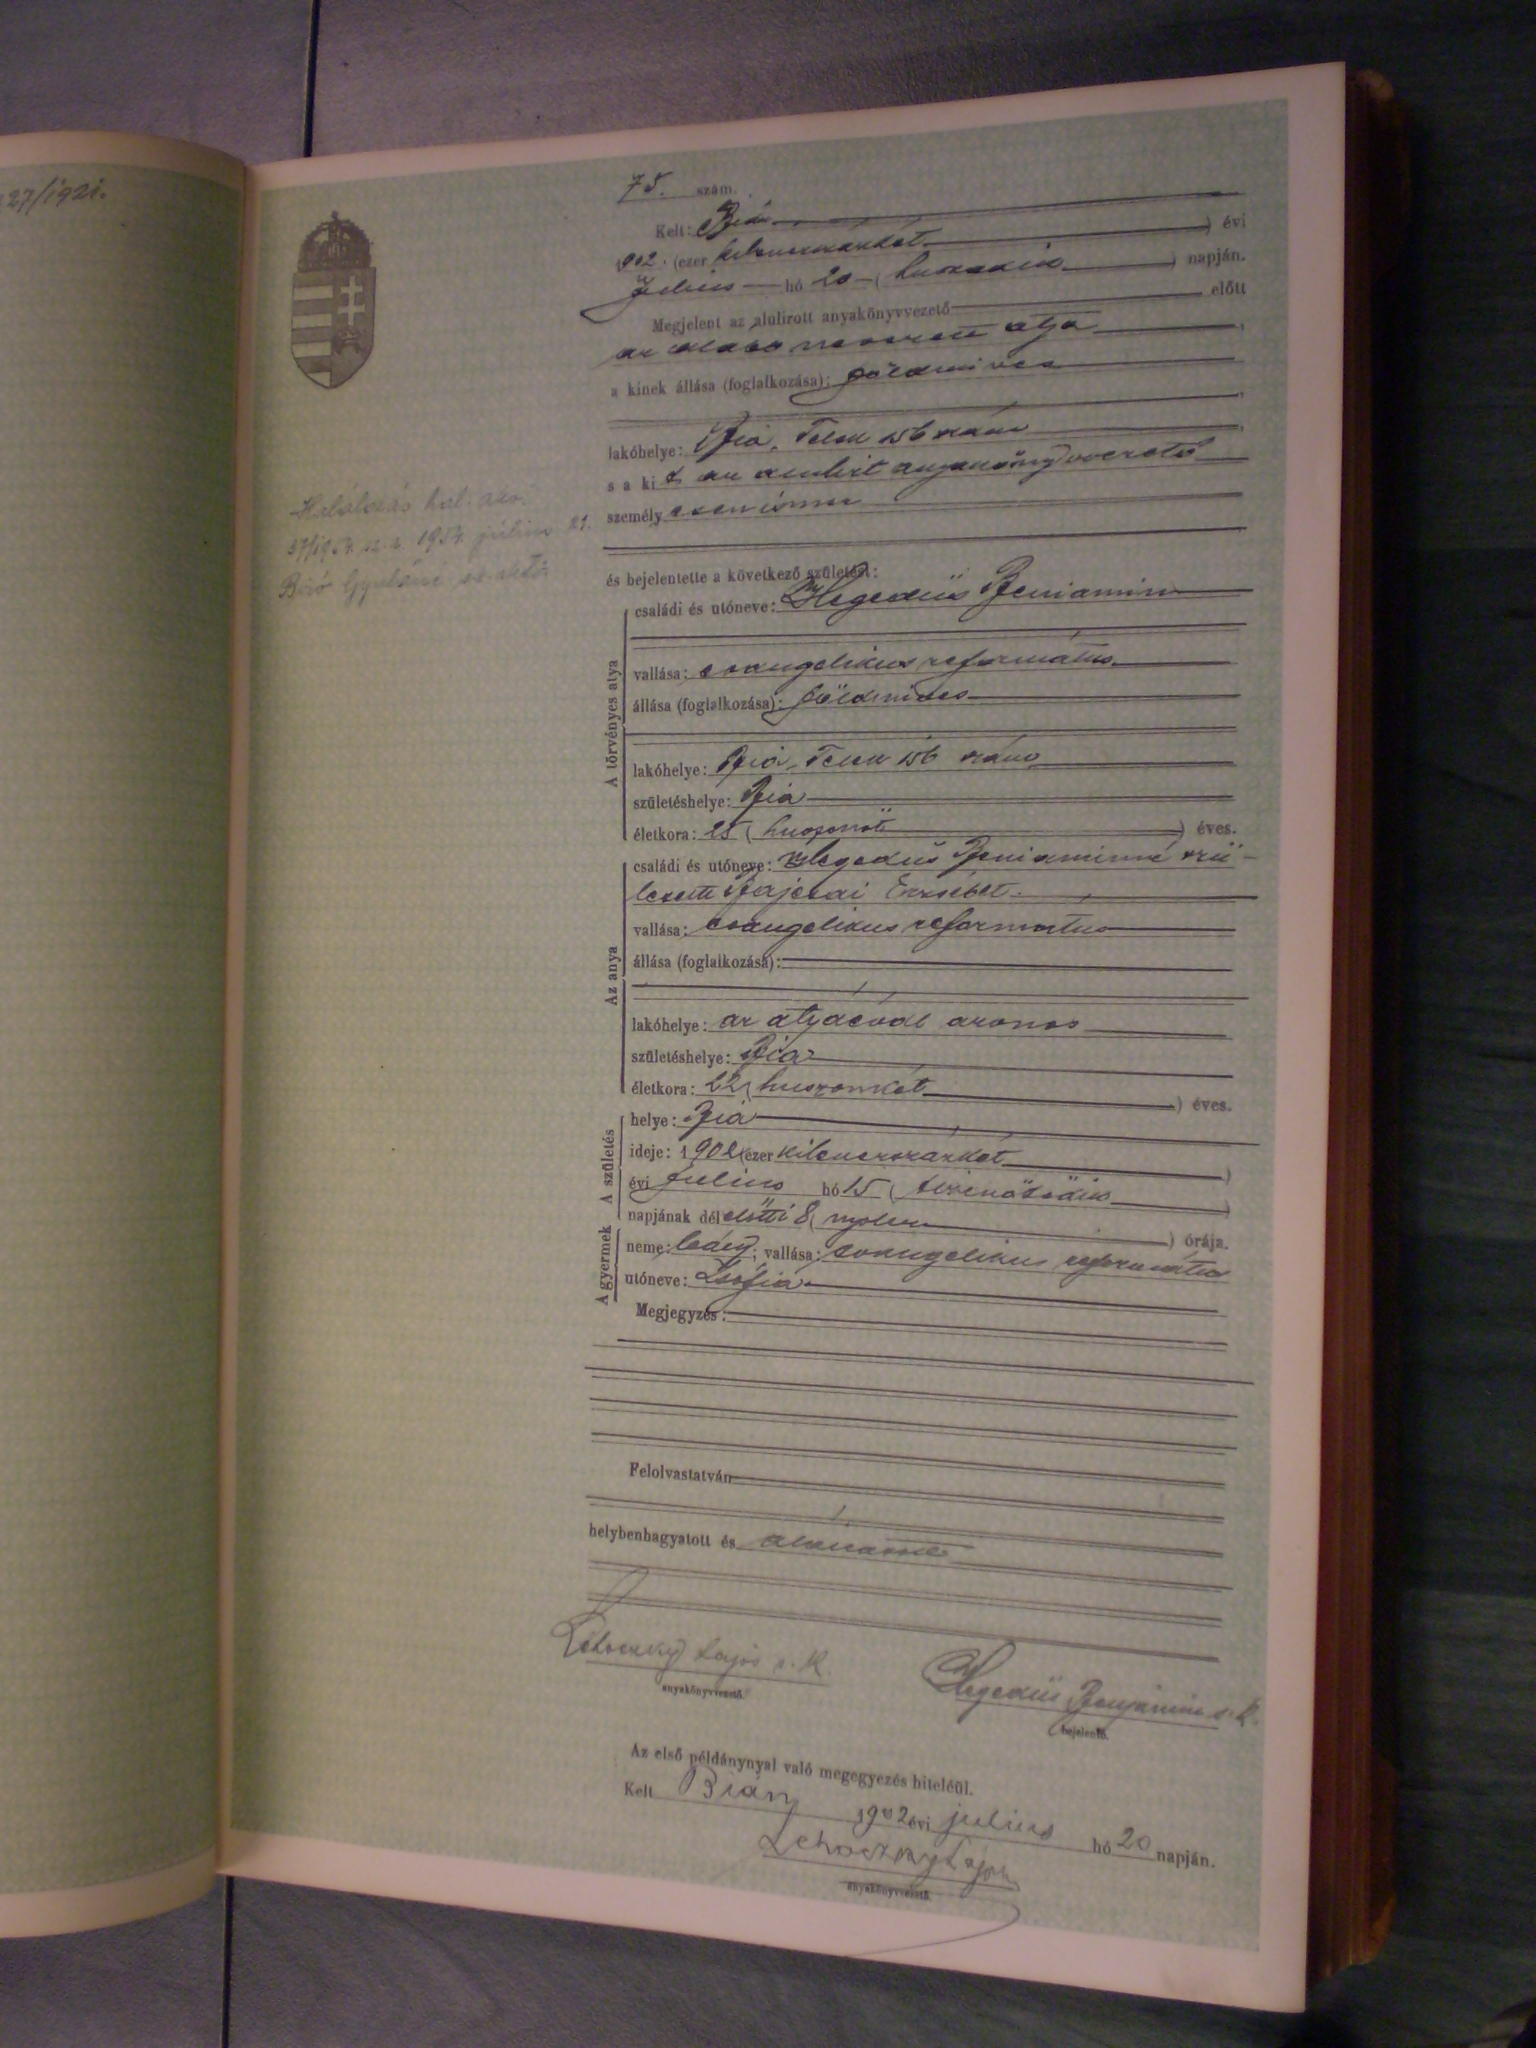 27/1921.
75. szám.
Kelt: Bián
1902. (ezer kilenczszázkét) évi
Julius hó 20 (huszadik) napján.
Megjelent az alulirott anyakönyvvezető előtt
az alább nevezett atya
a kinek állása (foglalkozása): földmives
lakóhelye: Bia, Telek 156 szám
s a ki t az alulirt anyakönyvvezető
személyesen ismer
és bejelentette a következő születést:
A törvényes atya
családi és utóneve: Hegedüs Beniamin
vallása: evangelikus református
állása (foglalkozása): földmives
lakóhelye: Bia, Telek 156 szám
születéshelye: Bia
életkora: 25 (huszonöt) éves.
Az anya
családi és utóneve: Hegedüs Beniaminné szü-
letett Bajcsai Erzsébet.
vallása: evangelikus református
állása (foglalkozása):
lakóhelye: az atyáéval azonos
születéshelye: Bia
életkora: 22 (huszonkét) éves.
A születés
helye: Bia
ideje: 1902 (ezer kilenczszázkét)
évi julius hó 15 (tizenötödik)
napjának dél előtti 8 (nyolcz) órája.
A gyermek
neme: leány; vallása: evangelikus református
utóneve: Zsófia
Megjegyzés:
Felolvastatván
helybenhagyatott és aláiratott
Lehoczky Lajos s. k.
anyakönyvvezető.
Hegedüs Benjámin s. k.
bejelentő.
Az első példánynyal való megegyezés hiteléül.
Kelt Bián 1902 évi julius hó 20 napján.
Lehoczky Lajos
anyakönyvvezető.
Halálozás hal. akv.
37/1954. 1954. július 21.
Biró Gyuláné